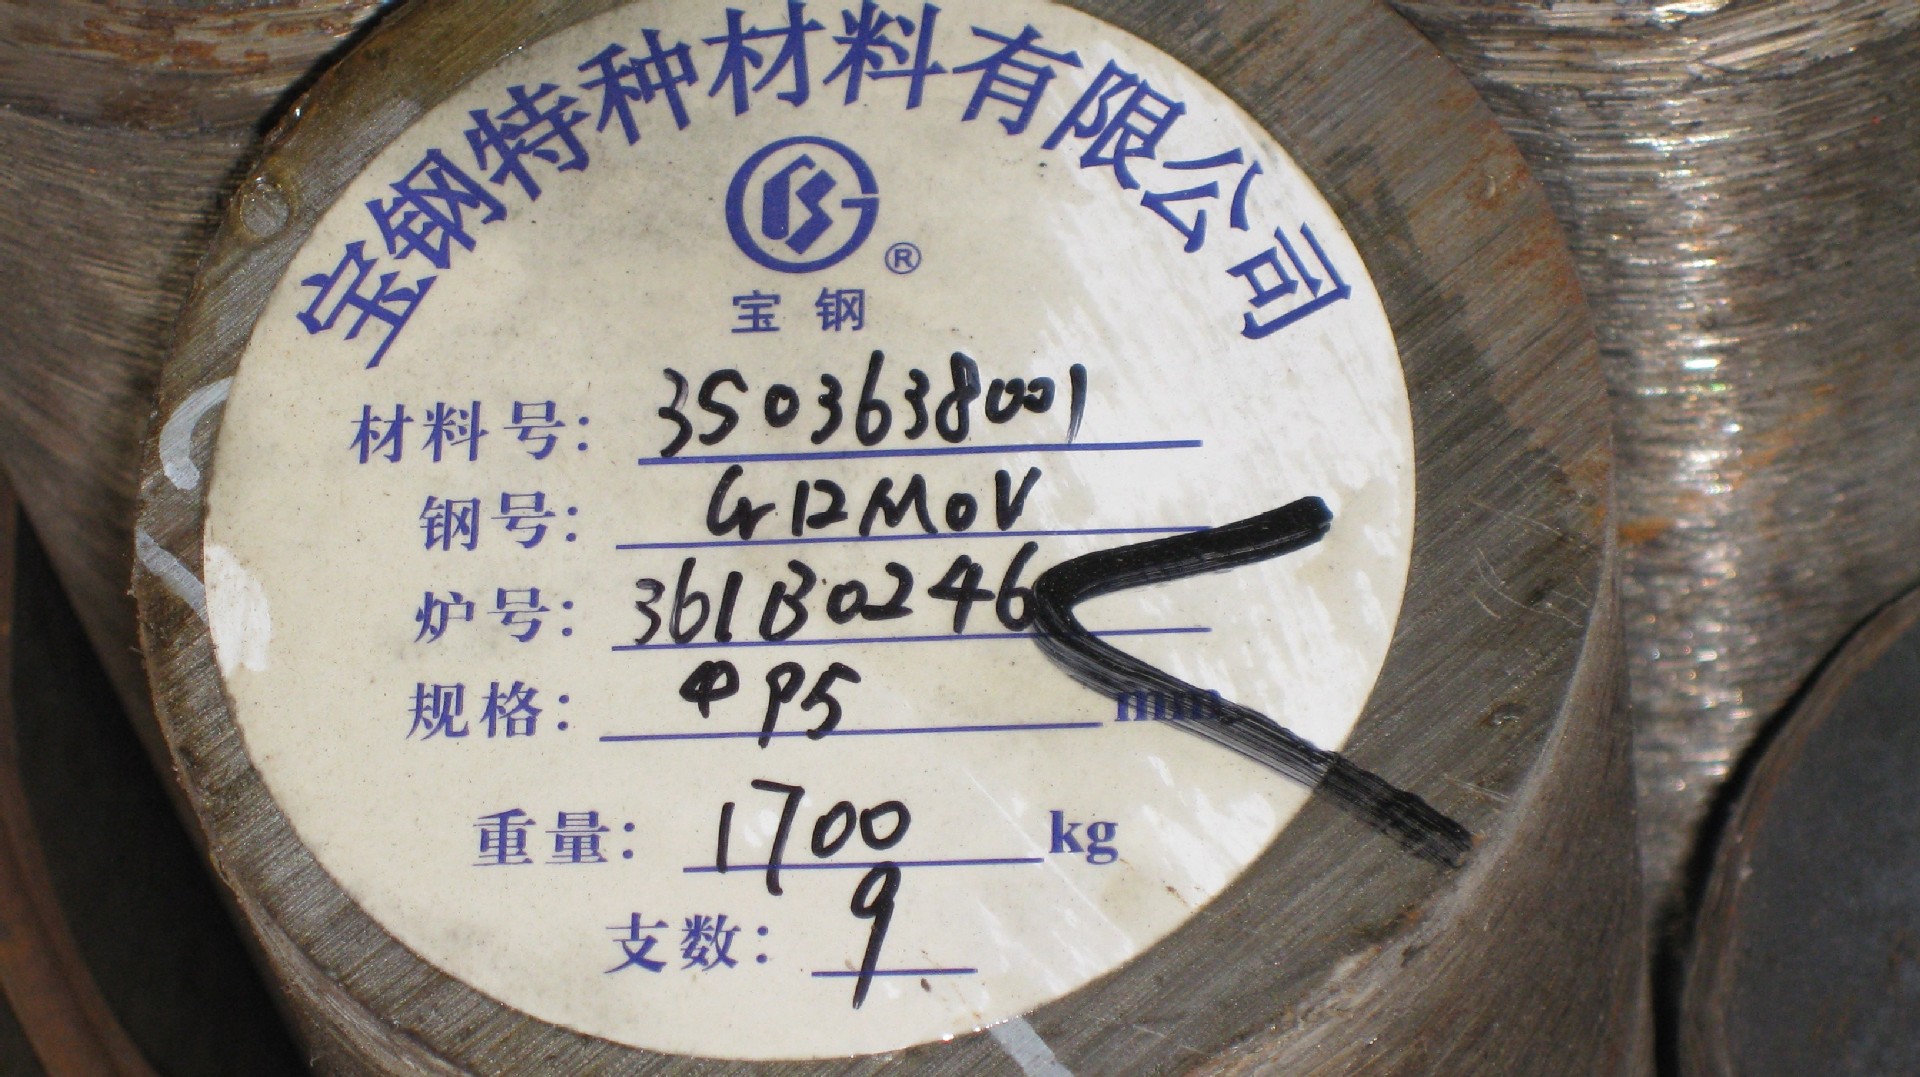 宝钢特种材料有限公司
®
宝钢
材料号: 3503638001
钢号: Cr12MoV
炉号: 361B0246
规格: Φ95 mm
重量: 1700 kg
支数: 9